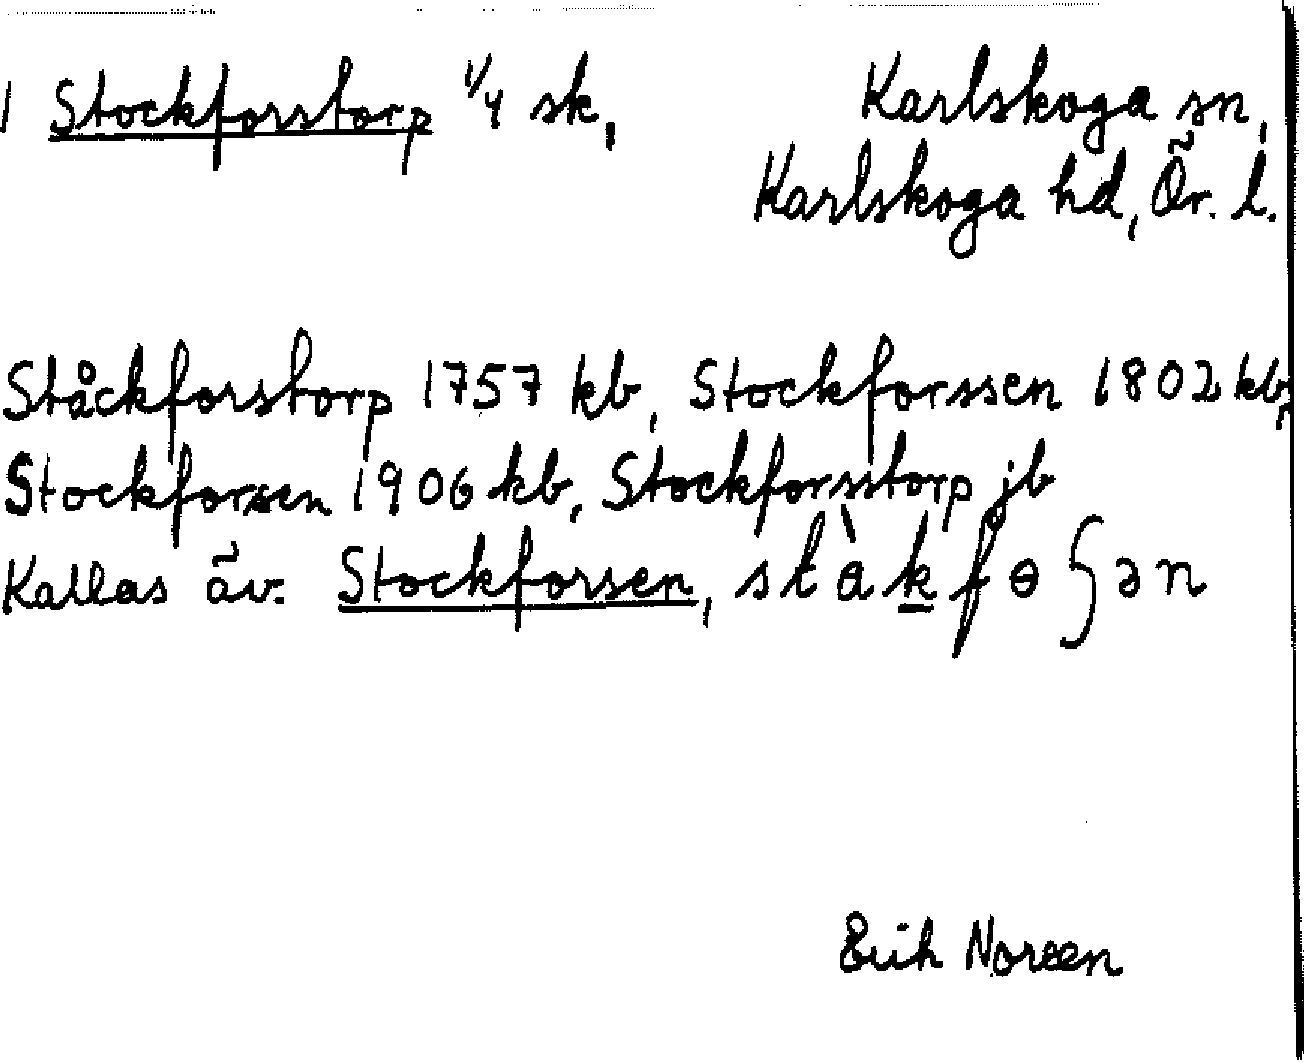 1 Stockforstorp 1/4 sk, Karlskoga sn,
Karlskoga hd, Ör. l.
Ståckforstorp 1757 kb, Stockforssen 1802 kb,
Stockforsen 1906 kb, Stockforsstorp jb
Kallas äv. Stockforsen, stàkfɵʃən
Erik Noreen